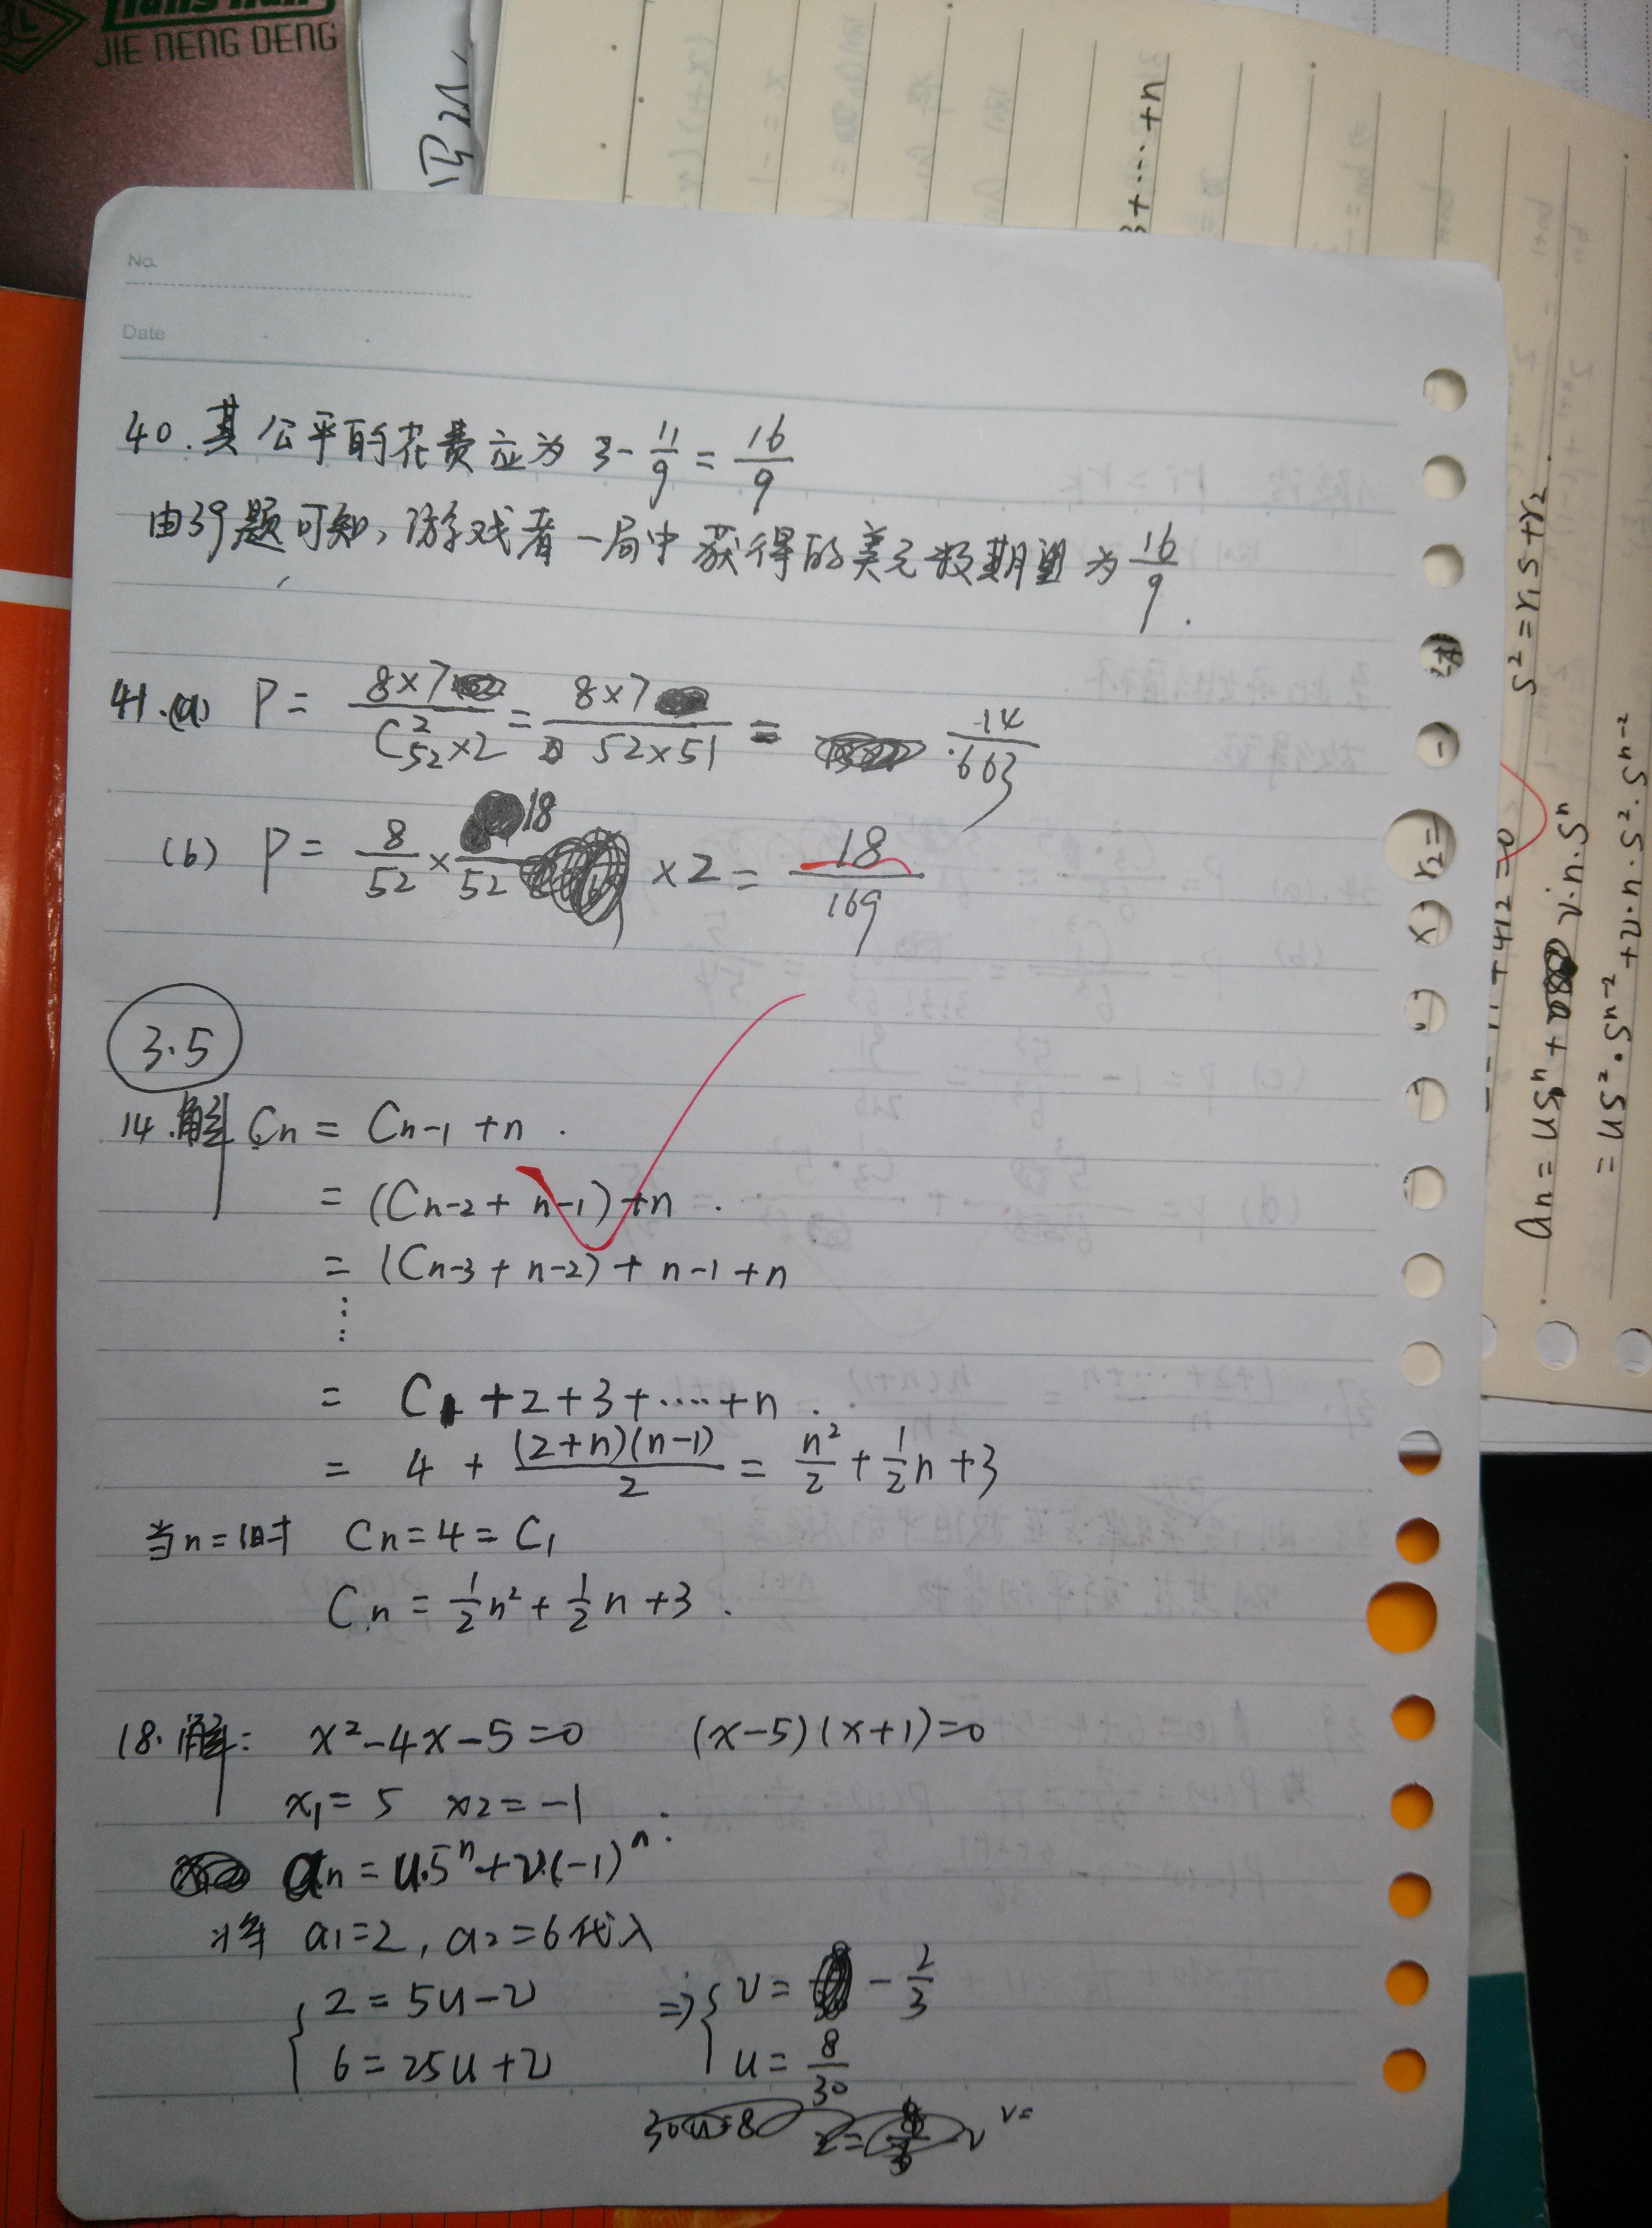 JIE NENG DENG
3+⋯+n
No.
Date
40.其公平的花费应为 3-11/9=16/9
由39题可知,游戏者一局中获得的美元数期望为16/9.
41.(a) P=8×7/(C²₅₂×2)=8×7/(52×51)=14/663
(b) P=8/52×18/52×2=18/169
3.5
14.解 Cn=Cn-1+n.
=(Cn-2+n-1)+n.
=(Cn-3+n-2)+n-1+n
⋮
=C1+2+3+⋯+n.
=4+(2+n)(n-1)/2=n²/2+1/2n+3
当n=1时 Cn=4=C1
Cn=1/2n²+1/2n+3.
18.解: x²-4x-5=0 (x-5)(x+1)=0
x1=5 x2=-1
an=u·5ⁿ+v·(-1)ⁿ.
将 a1=2,a2=6代入
{2=5u-v ⇒{v=-2/3
6=25u+v u=8/30
30u=8
v=
s²=r1s+r2
an=usⁿ+v·n·sⁿ
=us²·sⁿ⁻²+v·n·s²·sⁿ⁻²